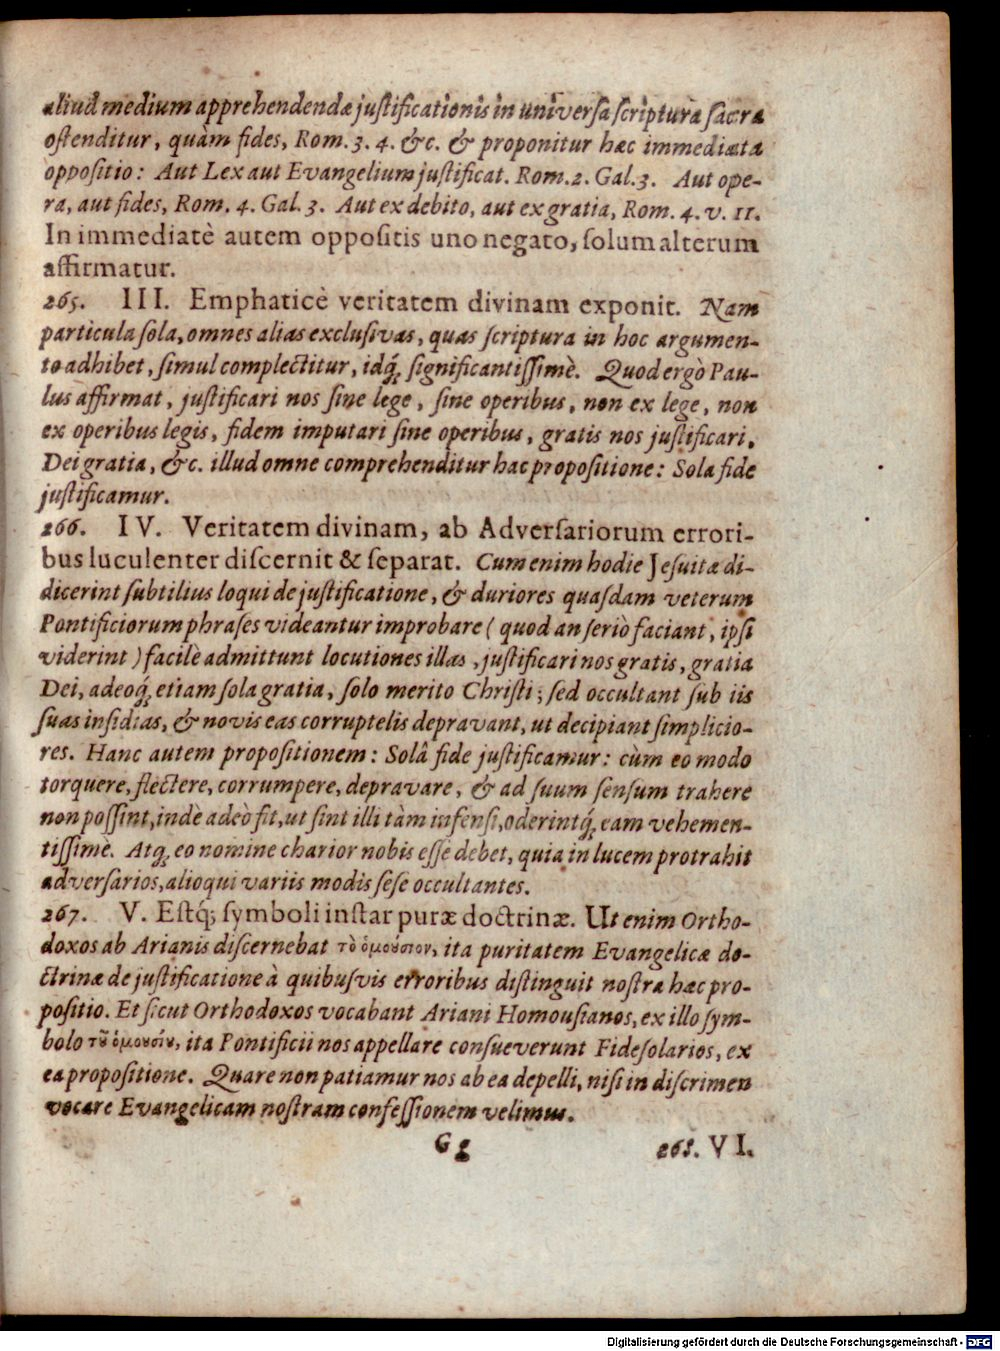 aliud medium apprehendendæ justificationis in universa scriptura sacra
ostenditur, quàm fides, Rom. 3. 4. &c. & proponitur hæc immediata
oppositio: Aut Lex aut Evangelium justificat. Rom. 2. Gal. 3. Aut ope-
ra, aut fides, Rom. 4. Gal. 3. Aut ex debito, aut ex gratia, Rom. 4. v. 11.
In immediatè autem oppositis uno negato, solum alterum
affirmatur.
265. III. Emphaticè veritatem divinam exponit. Nam
particula sola, omnes alias exclusivas, quas scriptura in hoc argumen-
to adhibet, simul complectitur, idq́; significantissimè. Quod ergò Pau-
lus affirmat, justificari nos sine lege, sine operibus, non ex lege, non
ex operibus legis, fidem imputari sine operibus, gratis nos justificari,
Dei gratia, &c. illud omne comprehenditur hac propositione: Sola fide
justificamur.
266. IV. Veritatem divinam, ab Adversariorum errori-
bus luculenter discernit & separat. Cum enim hodie Jesuitæ di-
dicerint subtilius loqui de justificatione, & duriores quasdam veterum
Pontificiorum phrases videantur improbare (quod an seriò faciant, ipsi
viderint) facilè admittunt locutiones illas, justificari nos gratis, gratia
Dei, adeoq́; etiam sola gratia, solo merito Christi; sed occultant sub iis
suas insidias, & novis eas corruptelis depravant, ut decipiant simplicio-
res. Hanc autem propositionem: Solâ fide justificamur: cùm eo modo
torquere, flectere, corrumpere, depravare, & ad suum sensum trahere
non possint, indè adeò fit, ut sint illi tàm infensi, oderintq́; eam vehemen-
tissimè. Atq; eo nomine charior nobis esse debet, quia in lucem protrahit
adversarios, alioqui variis modis sese occultantes.
267. V. Estq́; symboli instar puræ doctrinæ. Ut enim Ortho-
doxos ab Arianis discernebat τὸ ὁμούσιον, ita puritatem Evangelicæ do-
ctrinæ de justificatione à quibusvis erroribus distinguit nostra hæc pro-
positio. Et sicut Orthodoxos vocabant Ariani Homousianos, ex illo sym-
bolo τοῦ ὁμουσίου, ita Pontificii nos appellare consueverunt Fidesolarios, ex
ea propositione. Quare non patiamur nos ab ea depelli, nisi in discrimen
vocare Evangelicam nostram confessionem velimus.
Gg 268. VI.
Digitalisierung gefördert durch die Deutsche Forschungsgemeinschaft - DFG